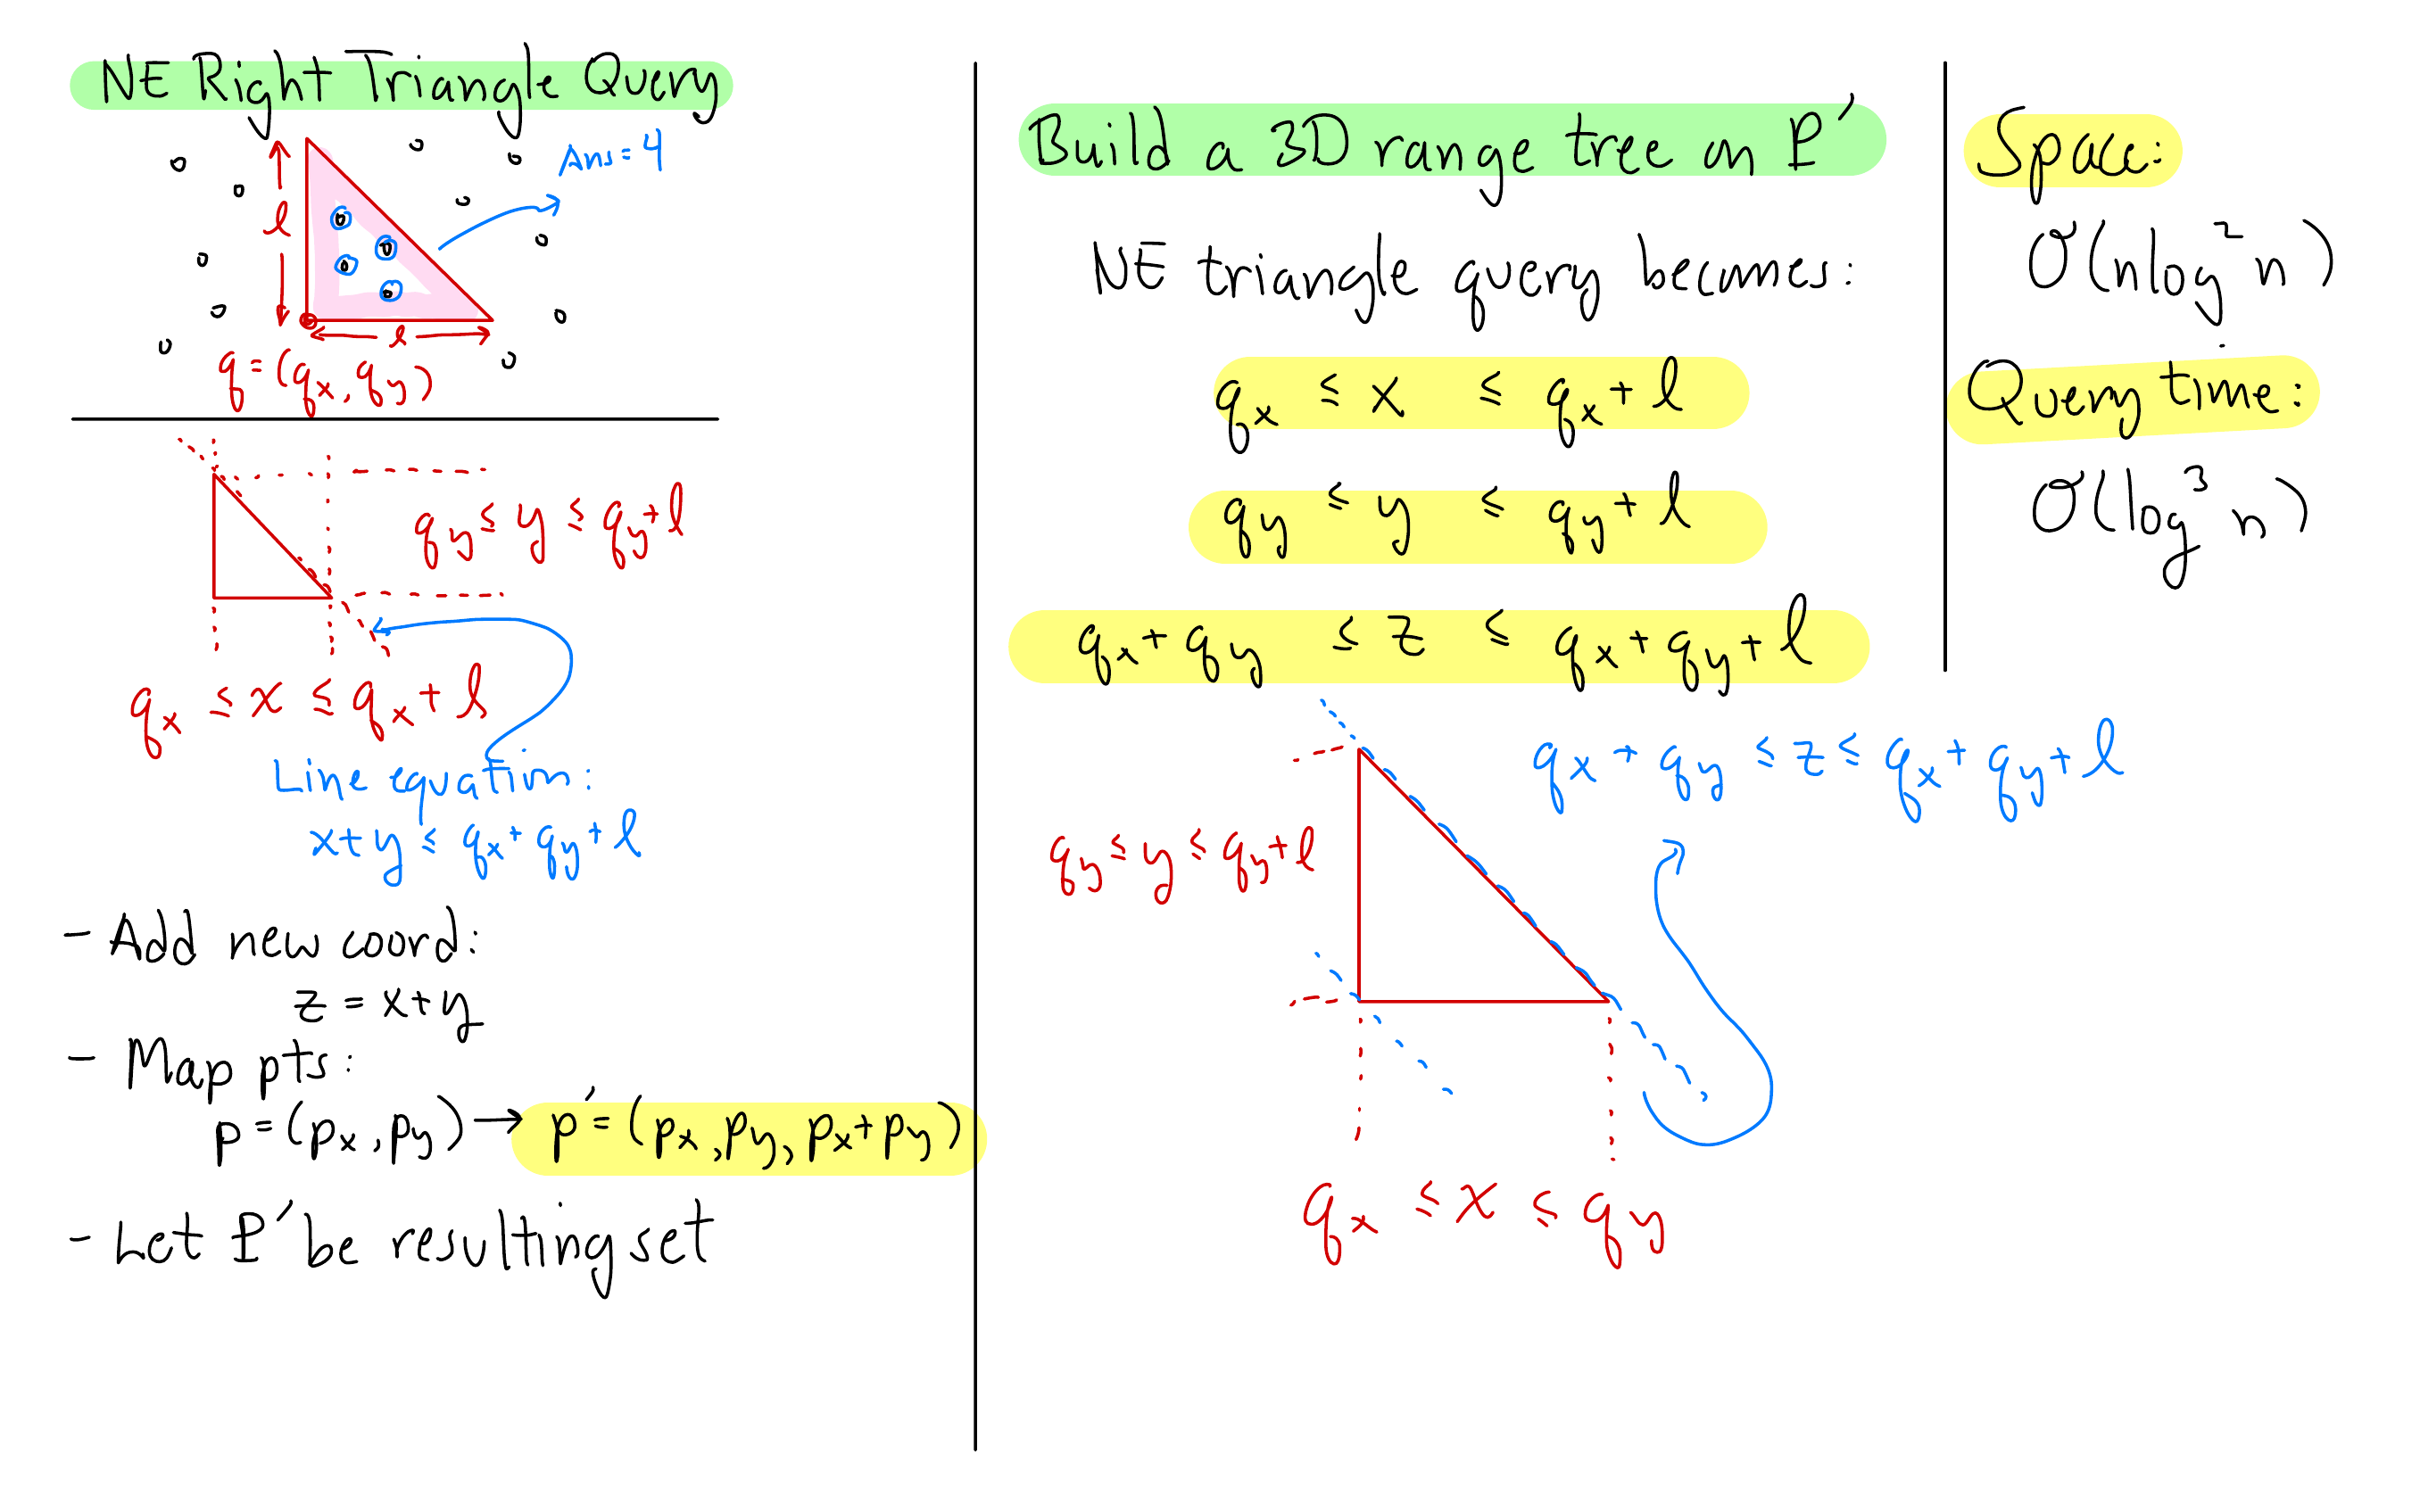 NE Right Triangle Query
Ans = 4
l
l
q = (qx, qy)
qy ≤ y ≤ qy + l
qx ≤ x ≤ qx + l
Line equation:
x + y ≤ qx + qy + l
- Add new coord:
z = x + y
- Map pts:
p = (px, py) → p' = (px, py, px + py)
- Let P' be resulting set
Build a 3D range tree on P'
NE triangle query becomes:
qx ≤ x ≤ qx + l
qy ≤ y ≤ qy + l
qx + qy ≤ z ≤ qx + qy + l
qx + qy ≤ z ≤ qx + qy + l
qy ≤ y ≤ qy + l
qx ≤ x ≤ qy
Space:
O(n log² n)
Query time:
O(log³ n)